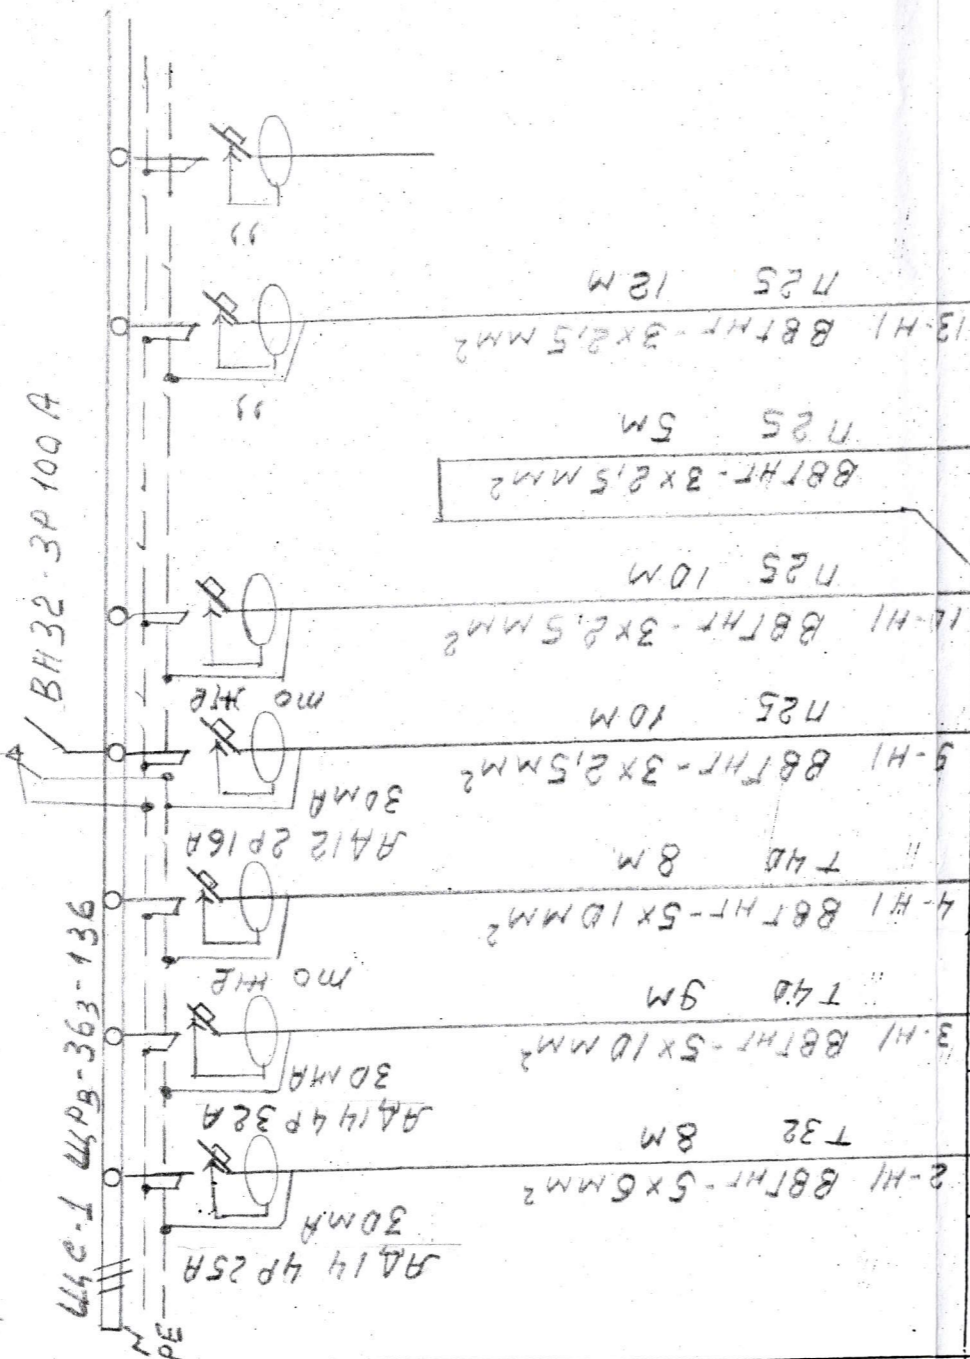 ЩС-1 ЩРв-36з-136
ВН32-3Р 100А
N
РЕ
АД14 4Р25А
30мА
2-Н1 ВВГнг-5х6мм²
Т32 8м
АД14 4Р32А
30мА
3-Н1 ВВГнг-5х10мм²
Т40 9м
то же
4-Н1 ВВГнг-5х10мм²
Т40 8м
АД12 2Р16А
30мА
9-Н1 ВВГнг-3х2,5мм²
П25 10м
то же
ВВГнг-3х2,5мм²
П25 10м
ВВГнг-3х2,5мм²
П25 5м
"
13-Н1 ВВГнг-3х2,5мм²
П25 12м
"